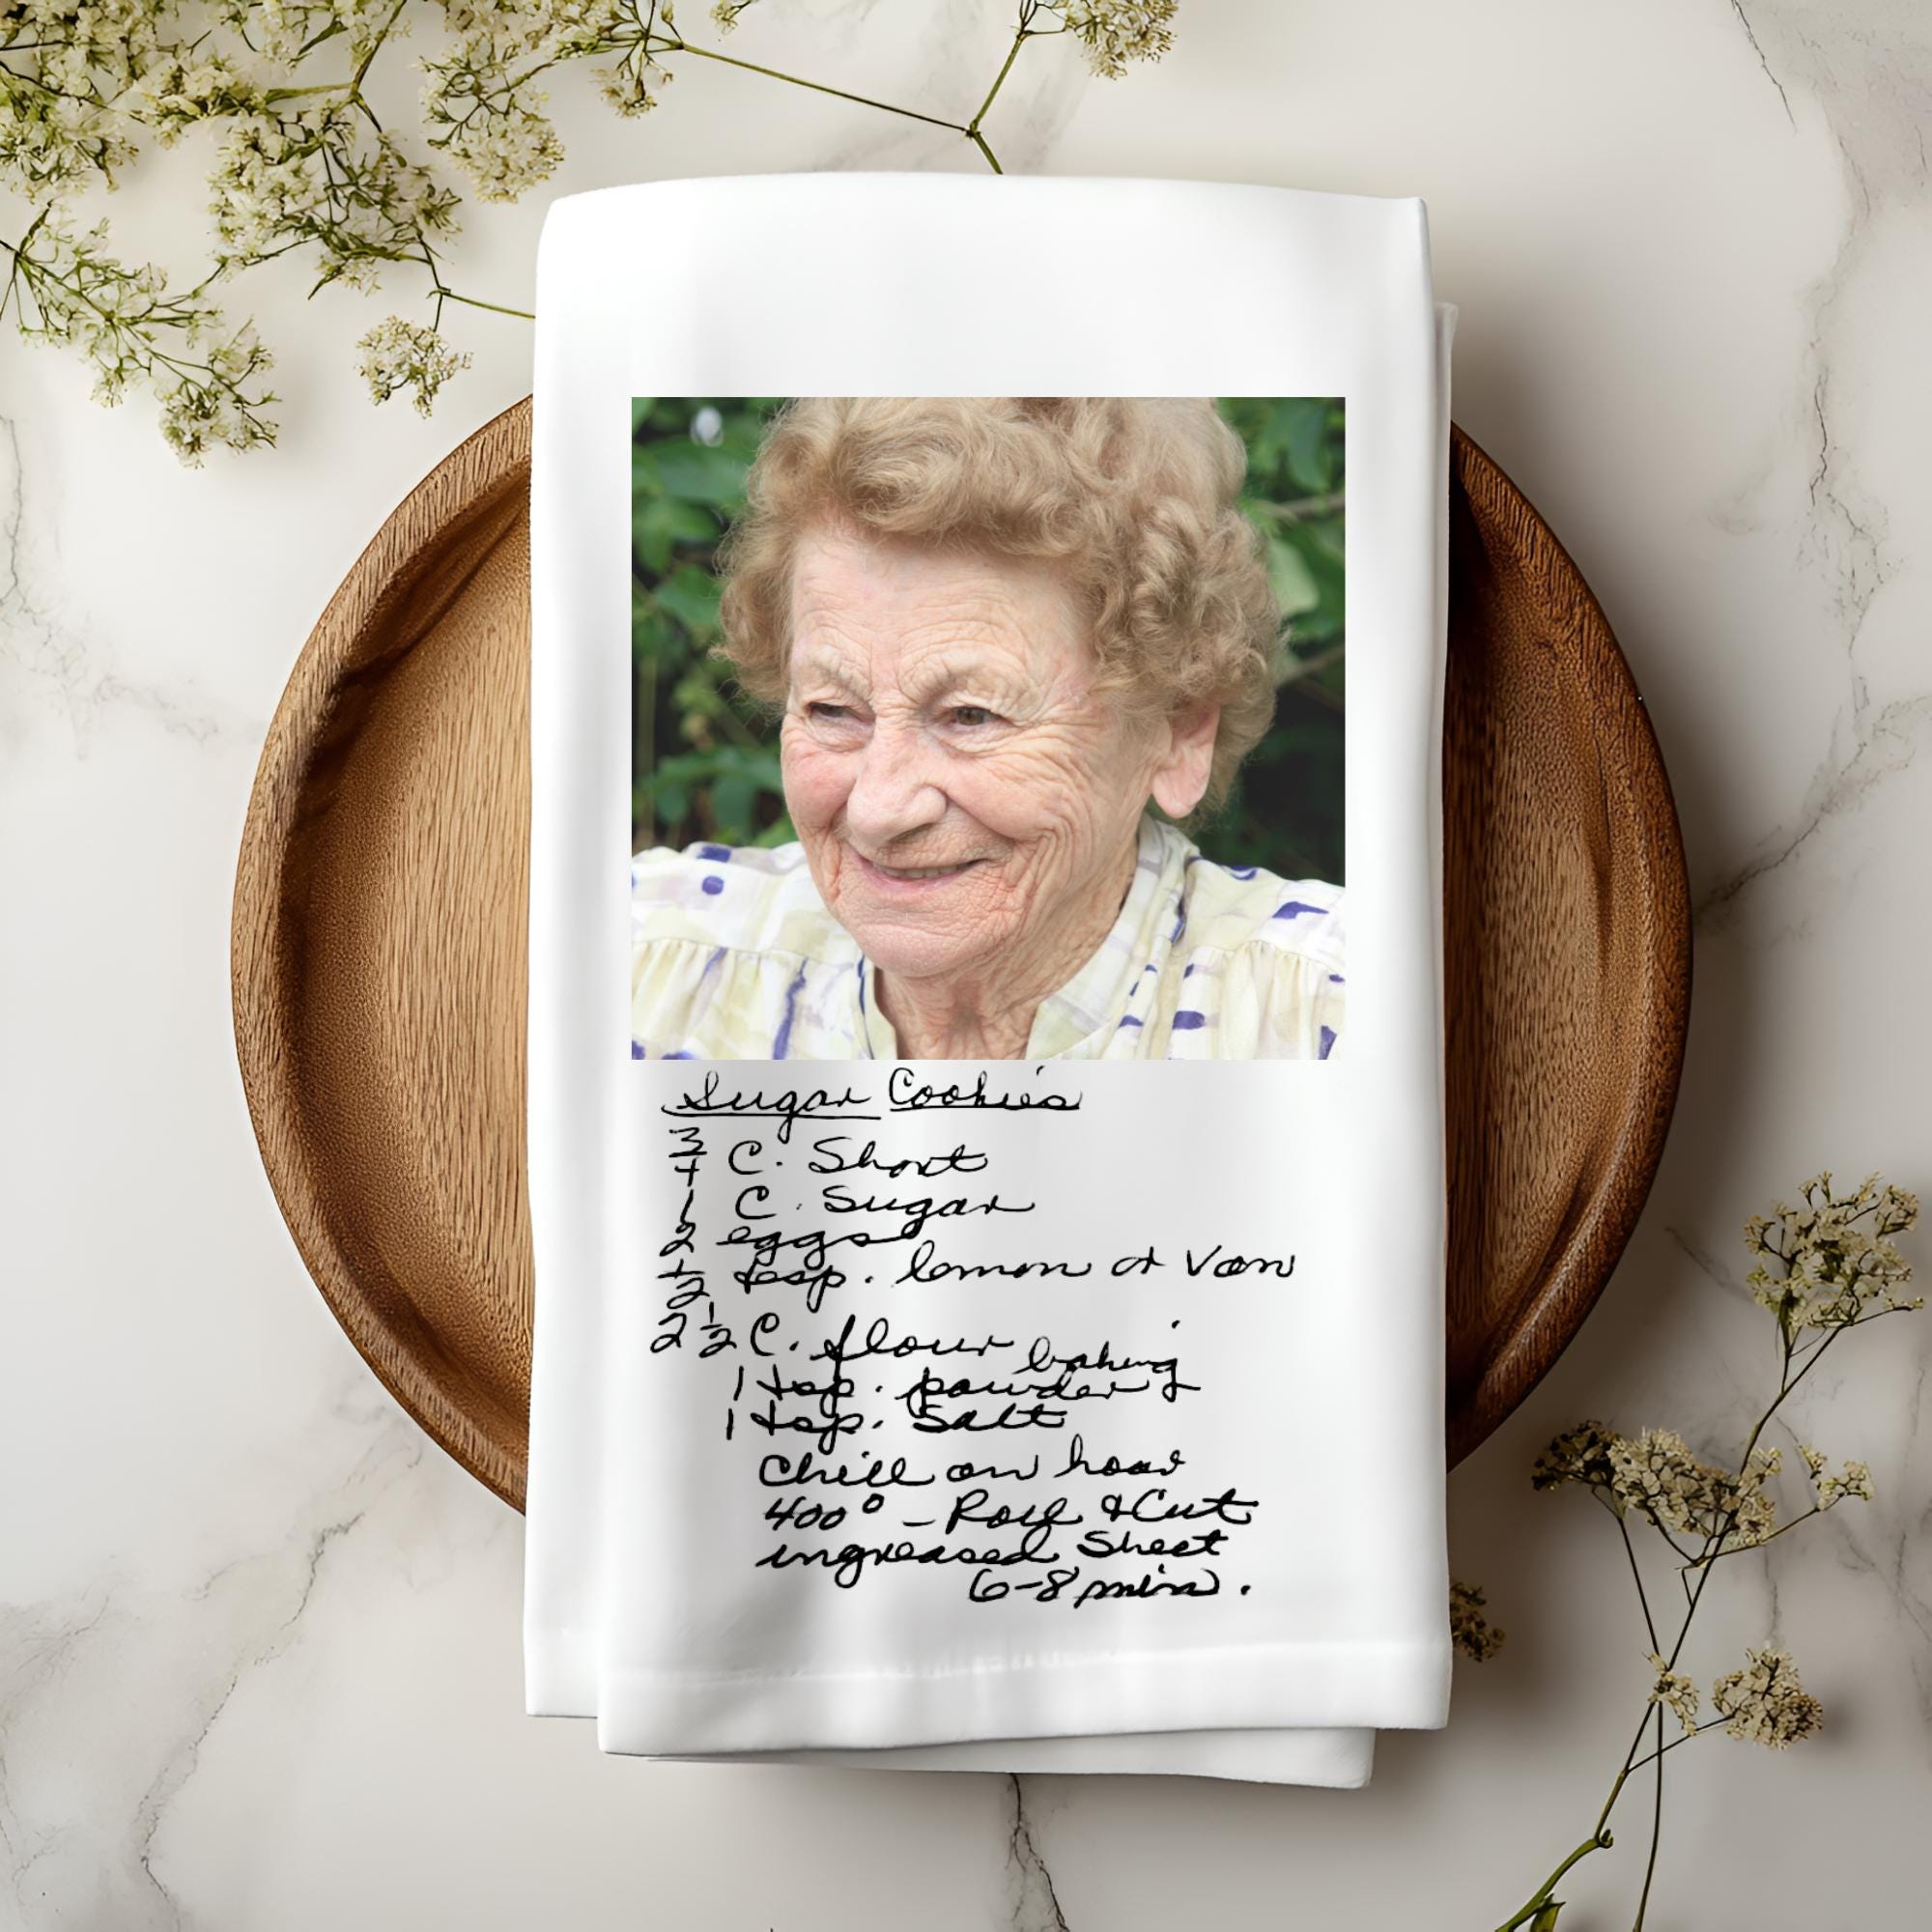 Sugar Cookies
3/4 C. Short
1 C. Sugar
2 eggs
1/2 tsp. lemon or Van
2 1/2 C. flour
1 tsp. baking powder
1 tsp. Salt
Chill an hour
400° - Roll & Cut
ungreased Sheet
6-8 min.